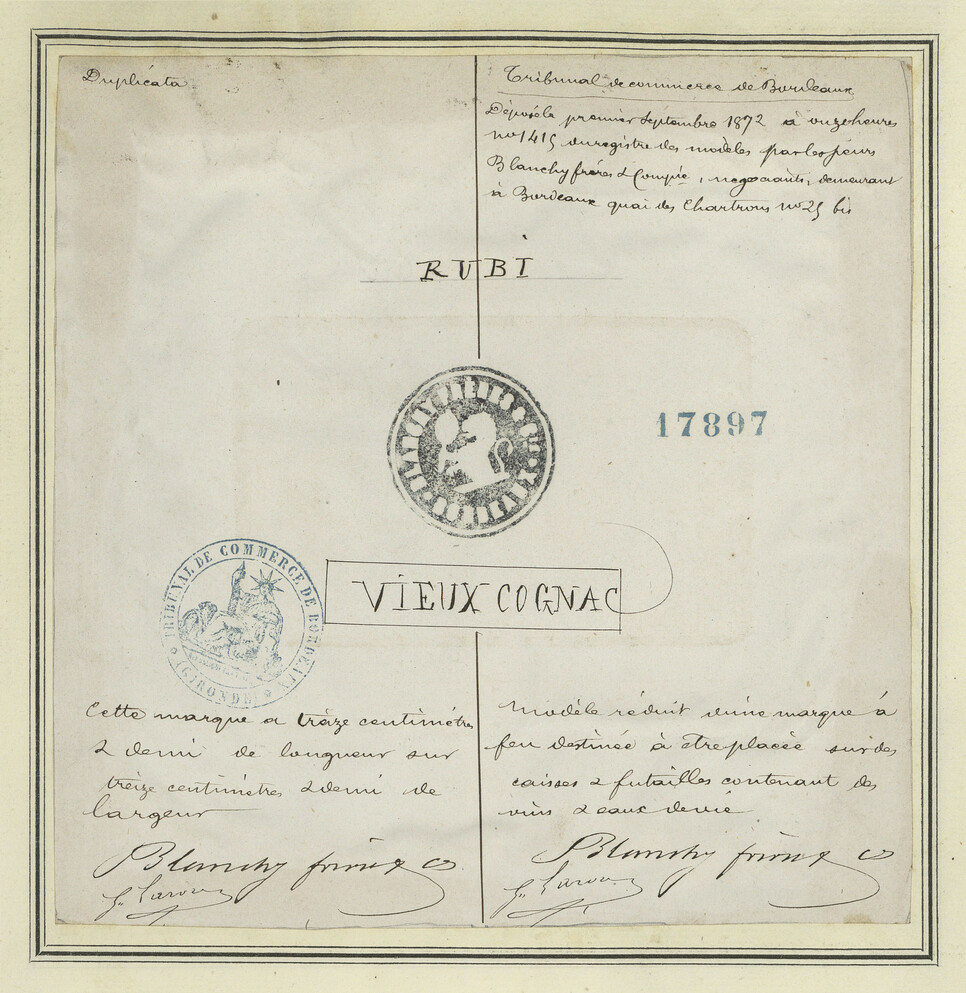 Duplicata
Tribunal de commerce de Bordeaux
Déposé le premier Septembre 1872 à onze heures
no 1415 enregistré des modèles par les sieurs
Blanchy frères & Compie, négociants, demeurant
à Bordeaux quai des Chartrons no 25 bis
RUBI
BLANCHY FRÈRES & CIE BORDEAUX
17897
VIEUX COGNAC
TRIBUNAL DE COMMERCE DE BORDEAUX
(GIRONDE)
Cette marque a trèize centimètres
& demi de longueur sur
trèize centimètres & demi de
largeur
Modèle réduit d'une marque à
feu destinée à être placée sur des
caisses & futailles contenant des
vins & eaux de vie
Blanchy frères & Co
Blanchy frères & Co